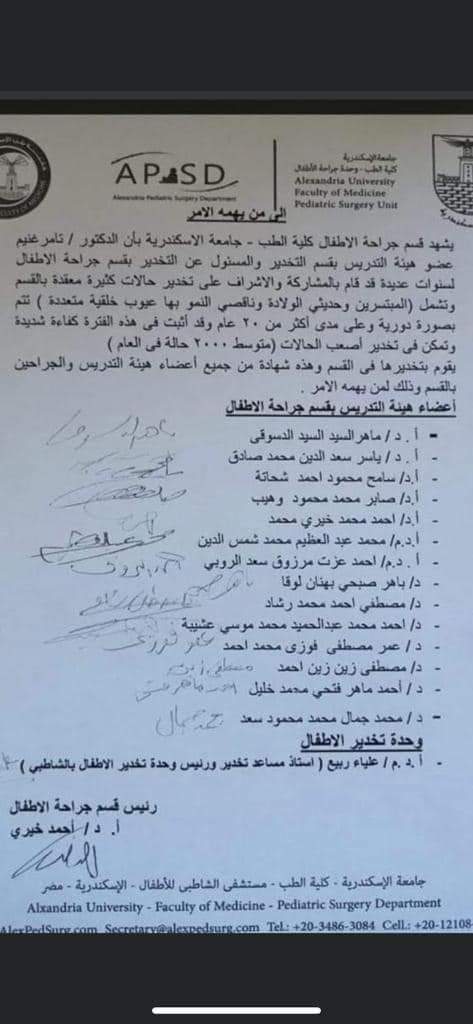 جامعة الإسكندرية
كلية الطب - وحدة جراحة الأطفال
Alexandria University
Faculty of Medicine
Pediatric Surgery Unit
APSD
Alexandria Pediatric Surgery Department
إلى من يهمه الامر
يشهد قسم جراحة الاطفال كلية الطب - جامعة الاسكندرية بأن الدكتور / تامر غنيم
عضو هيئة التدريس بقسم التخدير والمسئول عن التخدير بقسم جراحة الاطفال
لسنوات عديدة قد قام بالمشاركة والاشراف على تخدير حالات كثيرة معقدة بالقسم
وتشمل (المبتسرين وحديثي الولادة وناقصي النمو بها عيوب خلقية متعددة ) تتم
بصورة دورية وعلى مدى أكثر من ٢٠ عام وقد أثبت فى هذه الفترة كفاءة شديدة
وتمكن فى تخدير أصعب الحالات (متوسط ٢٠٠٠ حالة فى العام )
يقوم بتخديرها فى القسم وهذه شهادة من جميع أعضاء هيئة التدريس والجراحين
بالقسم وذلك لمن يهمه الامر .
أعضاء هيئة التدريس بقسم جراحة الاطفال
- أ . د / ماهر السيد السيد الدسوقى
- أ .د / ياسر سعد الدين محمد صادق
- أ.د/ سامح محمود احمد شحاتة
- أ.د/ صابر محمد محمود وهيب
- أ.د/ احمد محمد خيري محمد
- أ.د.م/ محمد عبد العظيم محمد شمس الدين
- أ . د.م/ احمد عزت مرزوق سعد الروبي
- د/ باهر صبحي بهنان لوقا
- د/ مصطفي احمد محمد رشاد
- د/ احمد محمد عبدالحميد محمد موسي عشيبة
- د / عمر مصطفى فوزى محمد احمد
- د/ مصطفى زين زين احمد
- د / أحمد ماهر فتحي محمد خليل
- د / محمد جمال محمد محمود سعد
وحدة تخدير الاطفال
- أ .د .م/ علياء ربيع ( استاذ مساعد تخدير ورئيس وحدة تخدير الاطفال بالشاطبي )
رئيس قسم جراحة الاطفال
أ. د / أحمد خيري
جامعة الإسكندرية - كلية الطب - مستشفى الشاطبى للأطفال - الإسكندرية - مصر
Alxandria University - Faculty of Medicine - Pediatric Surgery Department
AlexPedSurg.com Secretary@alexpedsurg.com Tel.: +20-3486-3084 Cell.: +20-12108